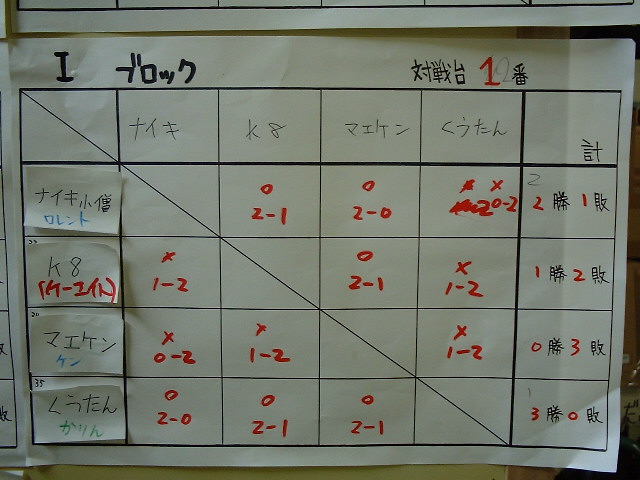 I ブロック 対戦台 12番
ナイキ K8 マエケン くうたん 計
ナイキ小僧 ○ ○ × × 2
ワレント 2-1 2-0 0-2 2勝1敗
22
K8 × ○ ×
(ケーエイト) 1-2 2-1 1-2 1勝2敗
20
マエケン × × ×
ケン 0-2 1-2 1-2 0勝3敗
35
くうたん ○ ○ ○
かりん 2-0 2-1 2-1 3勝0敗